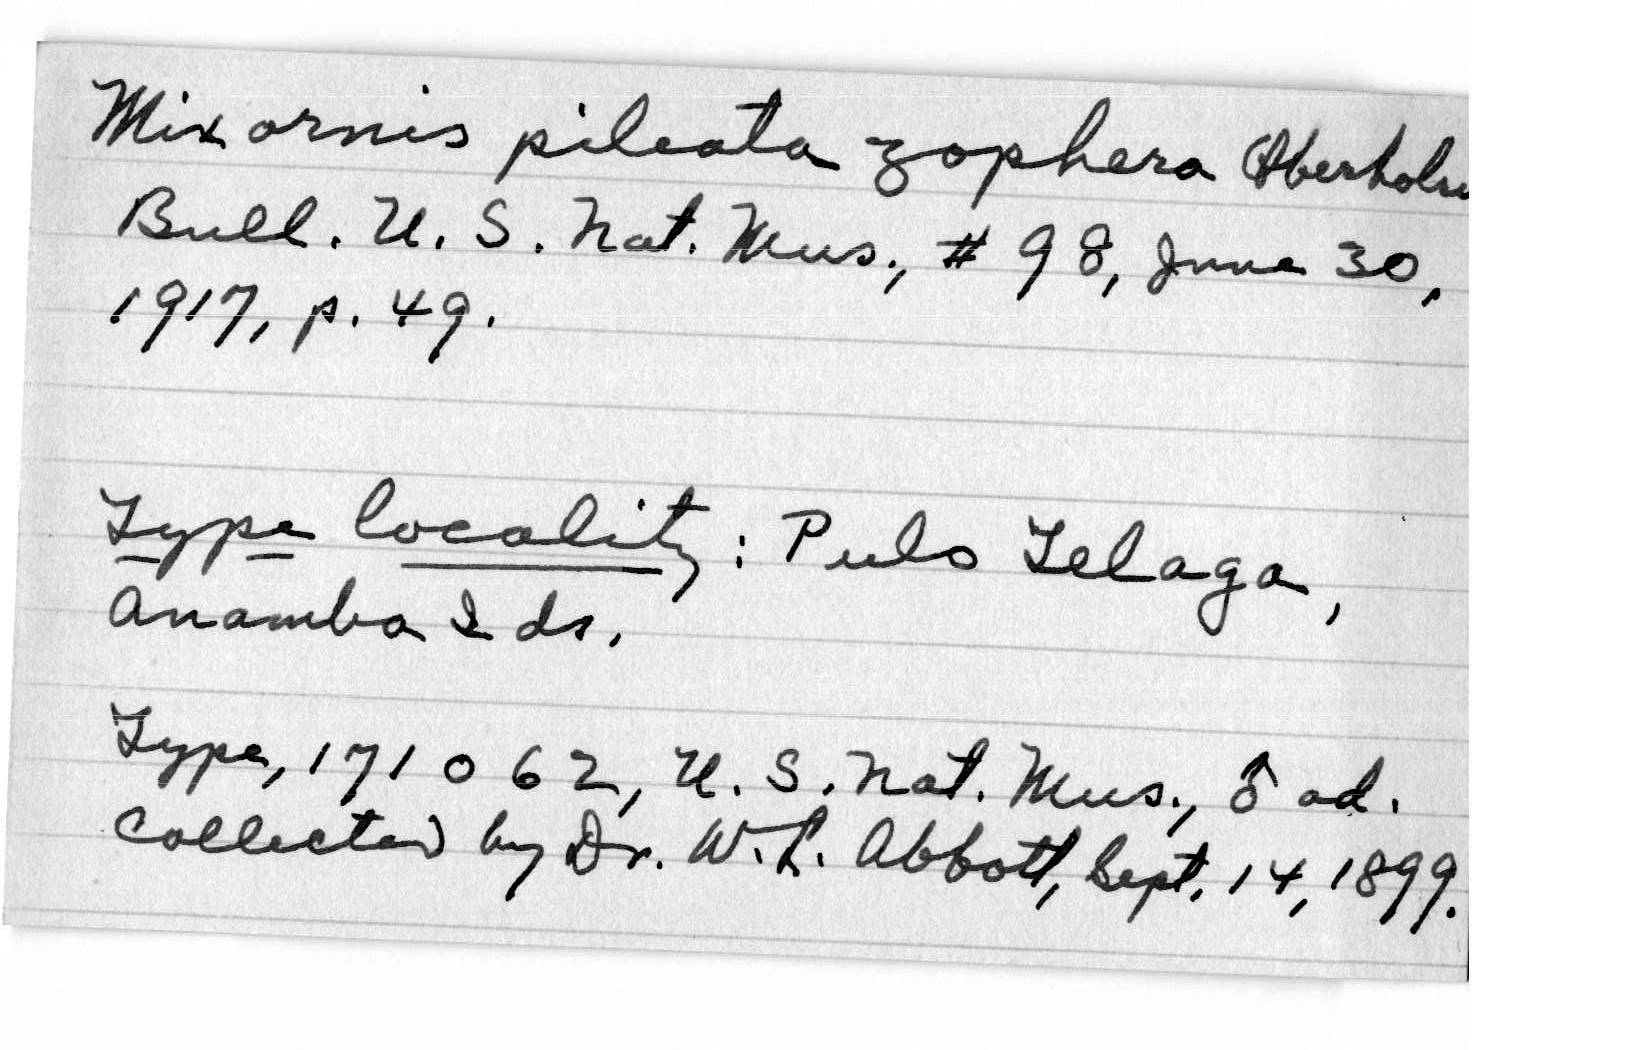 Mixornis pileata zophera Oberhols
Bull. U. S. Nat. Mus., # 98, June 30,
1917, p. 49.
Type locality: Pulo Telaga,
Anamba Ids.
Type, 171062, U. S. Nat. Mus., ♂ ad.
Collected by Dr. W. L. Abbott, Sept. 14, 1899.